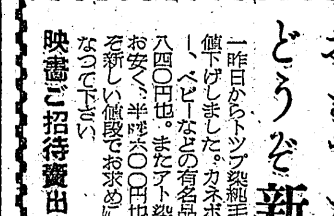 どうぞ新
一昨日からトツプ染純毛
値下げしました。カネボ
ー、ベビーなどの有名品
八四〇円也。またアト染
お安く、半 〇〇円也
ぞ新しい値段でお求めに
なつて下さい。
映画ご招待賣出